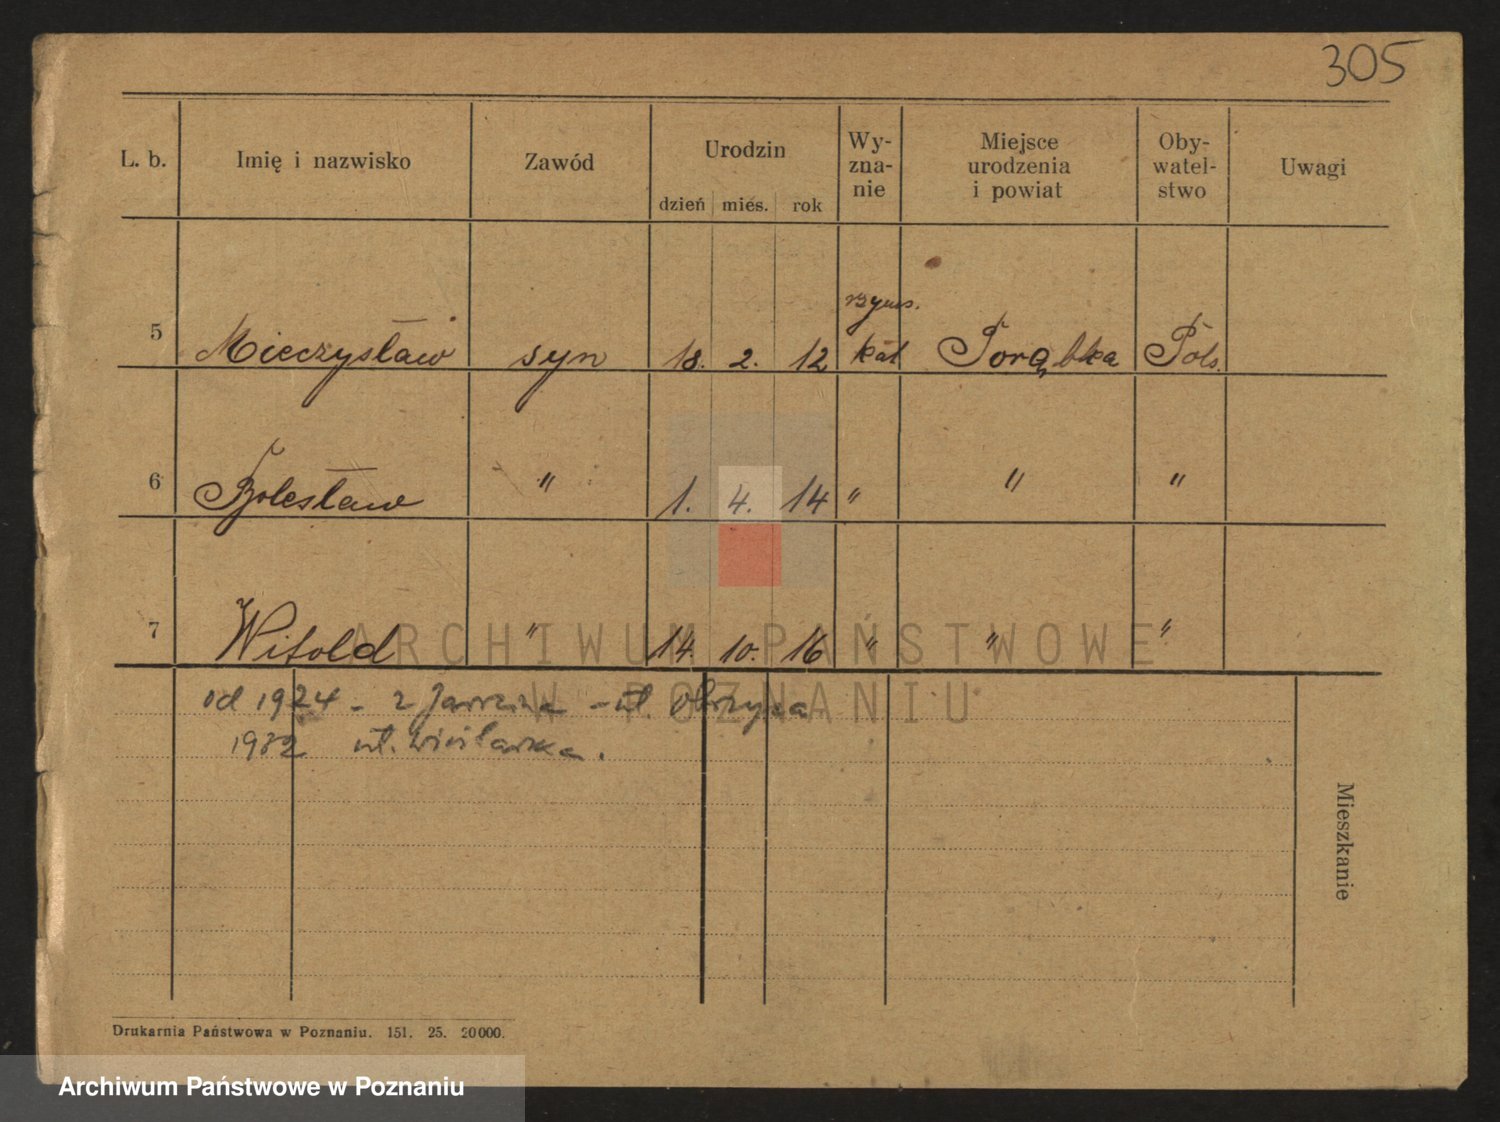 305
L. b. Imię i nazwisko Zawód Urodzin dzień mies. rok Wy-zna-nie Miejsce urodzenia i powiat Oby-watel-stwo Uwagi
rzyms.
5 Mieczysław syn 18. 2. 12 kat Porąbka Pols.
6 Bolesław " 1. 4. 14 " " "
7 Witold " 14. 10. 16 " " "
ARCHIWUM PAŃSTWOWE
W POZNANIU
od 1924 - z Jarocina - ul.
1932 ul. Wiślarska.
Mieszkanie
Drukarnia Państwowa w Poznaniu. 151. 25. 20000.
Archiwum Państwowe w Poznaniu